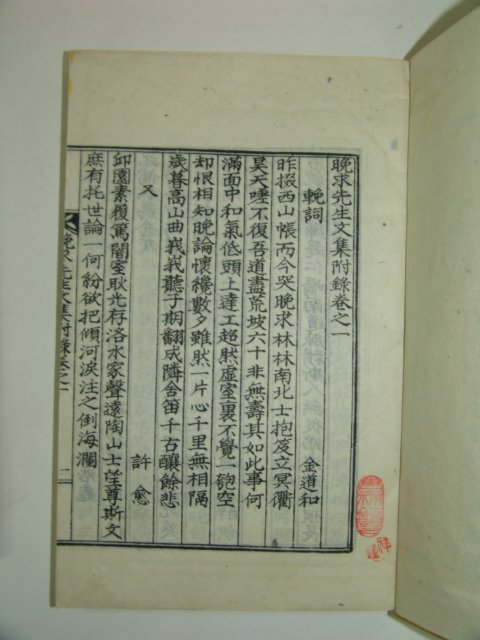 晚求先生文集附錄卷之一
輓詞 金道和
昨掇西山帳而今哭晚求林林南北士抱笈立冥衢
昊天嗟不復吾道盡荒坡六十非無壽其如此事何
滿面中和氣低頭上達工超然虛室裏不覺一匏空
却恨相知晚論懷纔數夕雖然一片心千里無相隔
歲暮高山曲峩峩聽子期翻成隣舍笛千古釀餘悲
又 許愈
邱園素履篤闇室耿光存洛水家聲遠陶山士望尊斯文
庶有托世論一何紛欲把傾河淚注之倒海瀾
晚求先生文集附錄卷之一 一